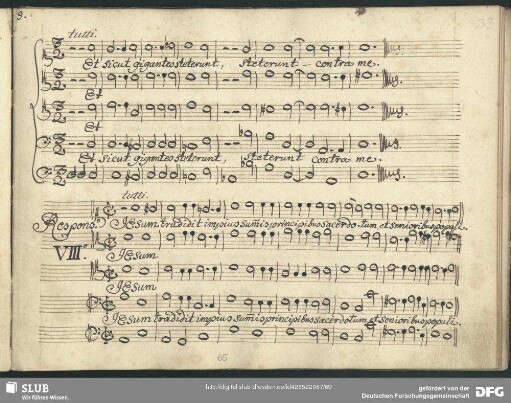 9.
tutti.
Et sicut gigantes steterunt, steterunt - contra me.
Et
Et
Et sicut gigantes steterunt, steterunt contra me.
tutti.
Respons.
VIII.
JEsum tradidit impius summis principibus sacerdotum et senioribus populi.
JEsum
JEsum
JEsum tradidit impius summis principibus sacerdotum et senioribus populi.
65
SLUB
Wir führen Wissen.
gefördert von der
Deutschen Forschungsgemeinschaft
DFG